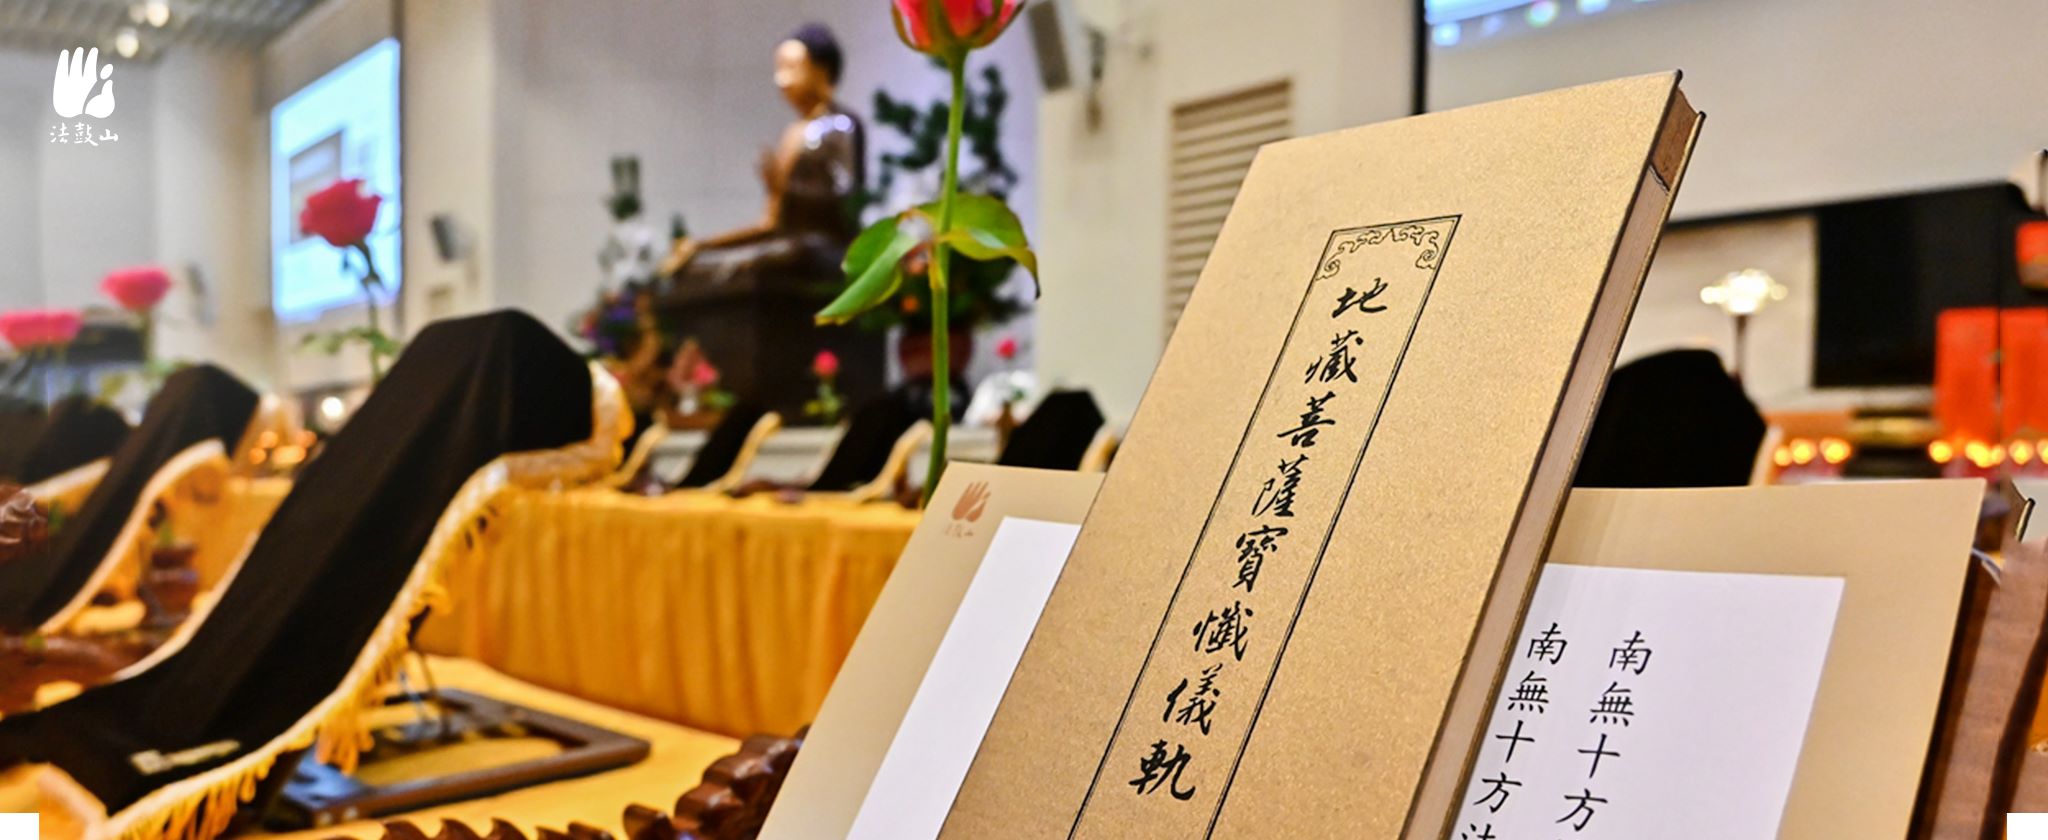 法鼓山
地藏菩薩寶懺儀軌
南無十方
南無十方法